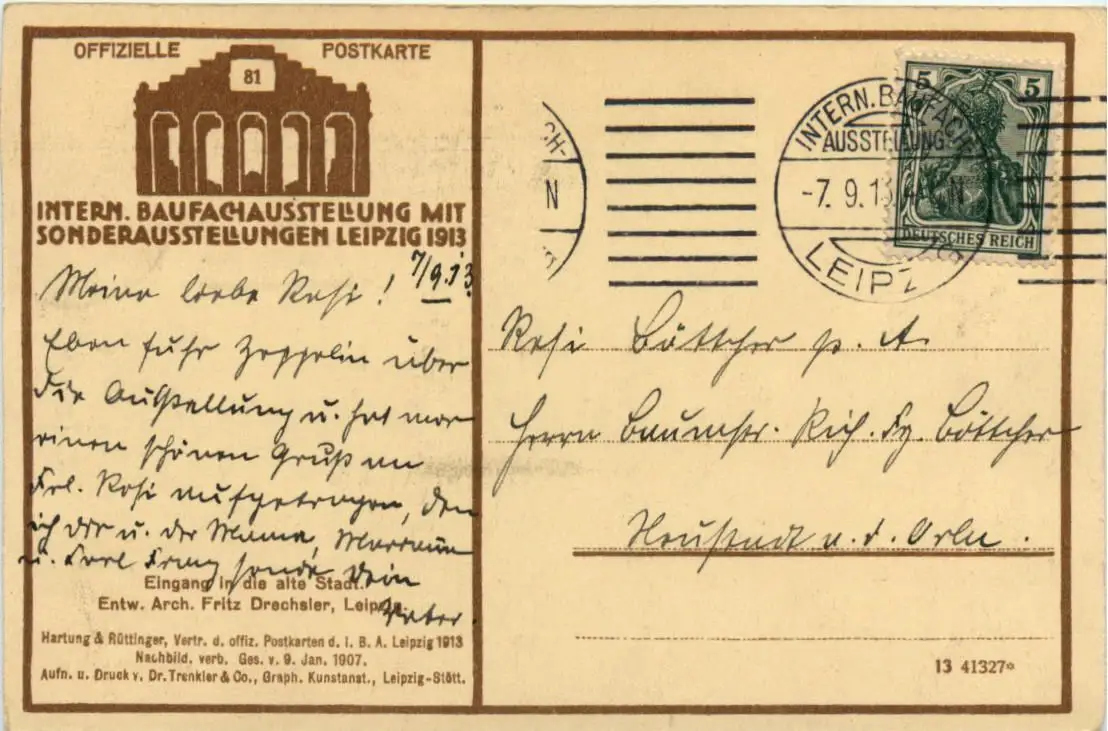 OFFIZIELLE POSTKARTE
81
INTERN. BAUFACHAUSSTELLUNG MIT
SONDERAUSSTELLUNGEN LEIPZIG 1913
7/9.13.
Meine liebe Rosi!
Eben fuhr Zeppelin über
die Ausstellung u. hat mor
einen schönen Gruß an
Frl. Rosi aufgetragen, den
ich dir u. der Mama, Marianne
u. Karl Franz sende. Dein
Vater.
Eingang in die alte Stadt.
Entw. Arch. Fritz Drechsler, Leipzig.
Hartung & Rüttinger, Vertr. d. offiz. Postkarten d. I. B. A. Leipzig 1913
Nachbild. verb. Ges. v. 9. Jan. 1907.
Aufn. u. Druck v. Dr. Trenkler & Co., Graph. Kunstanst., Leipzig-Stött.
CH-
N
INTERN. BAUFACH
AUSSTELLUNG
-7. 9. 13. N
LEIPZIG
5 5
DEUTSCHES REICH
Rosi Böttcher p. A.
Herrn Baumstr. Rich. Fz. Böttcher
Neustadt a. d. Orla.
13 41327*